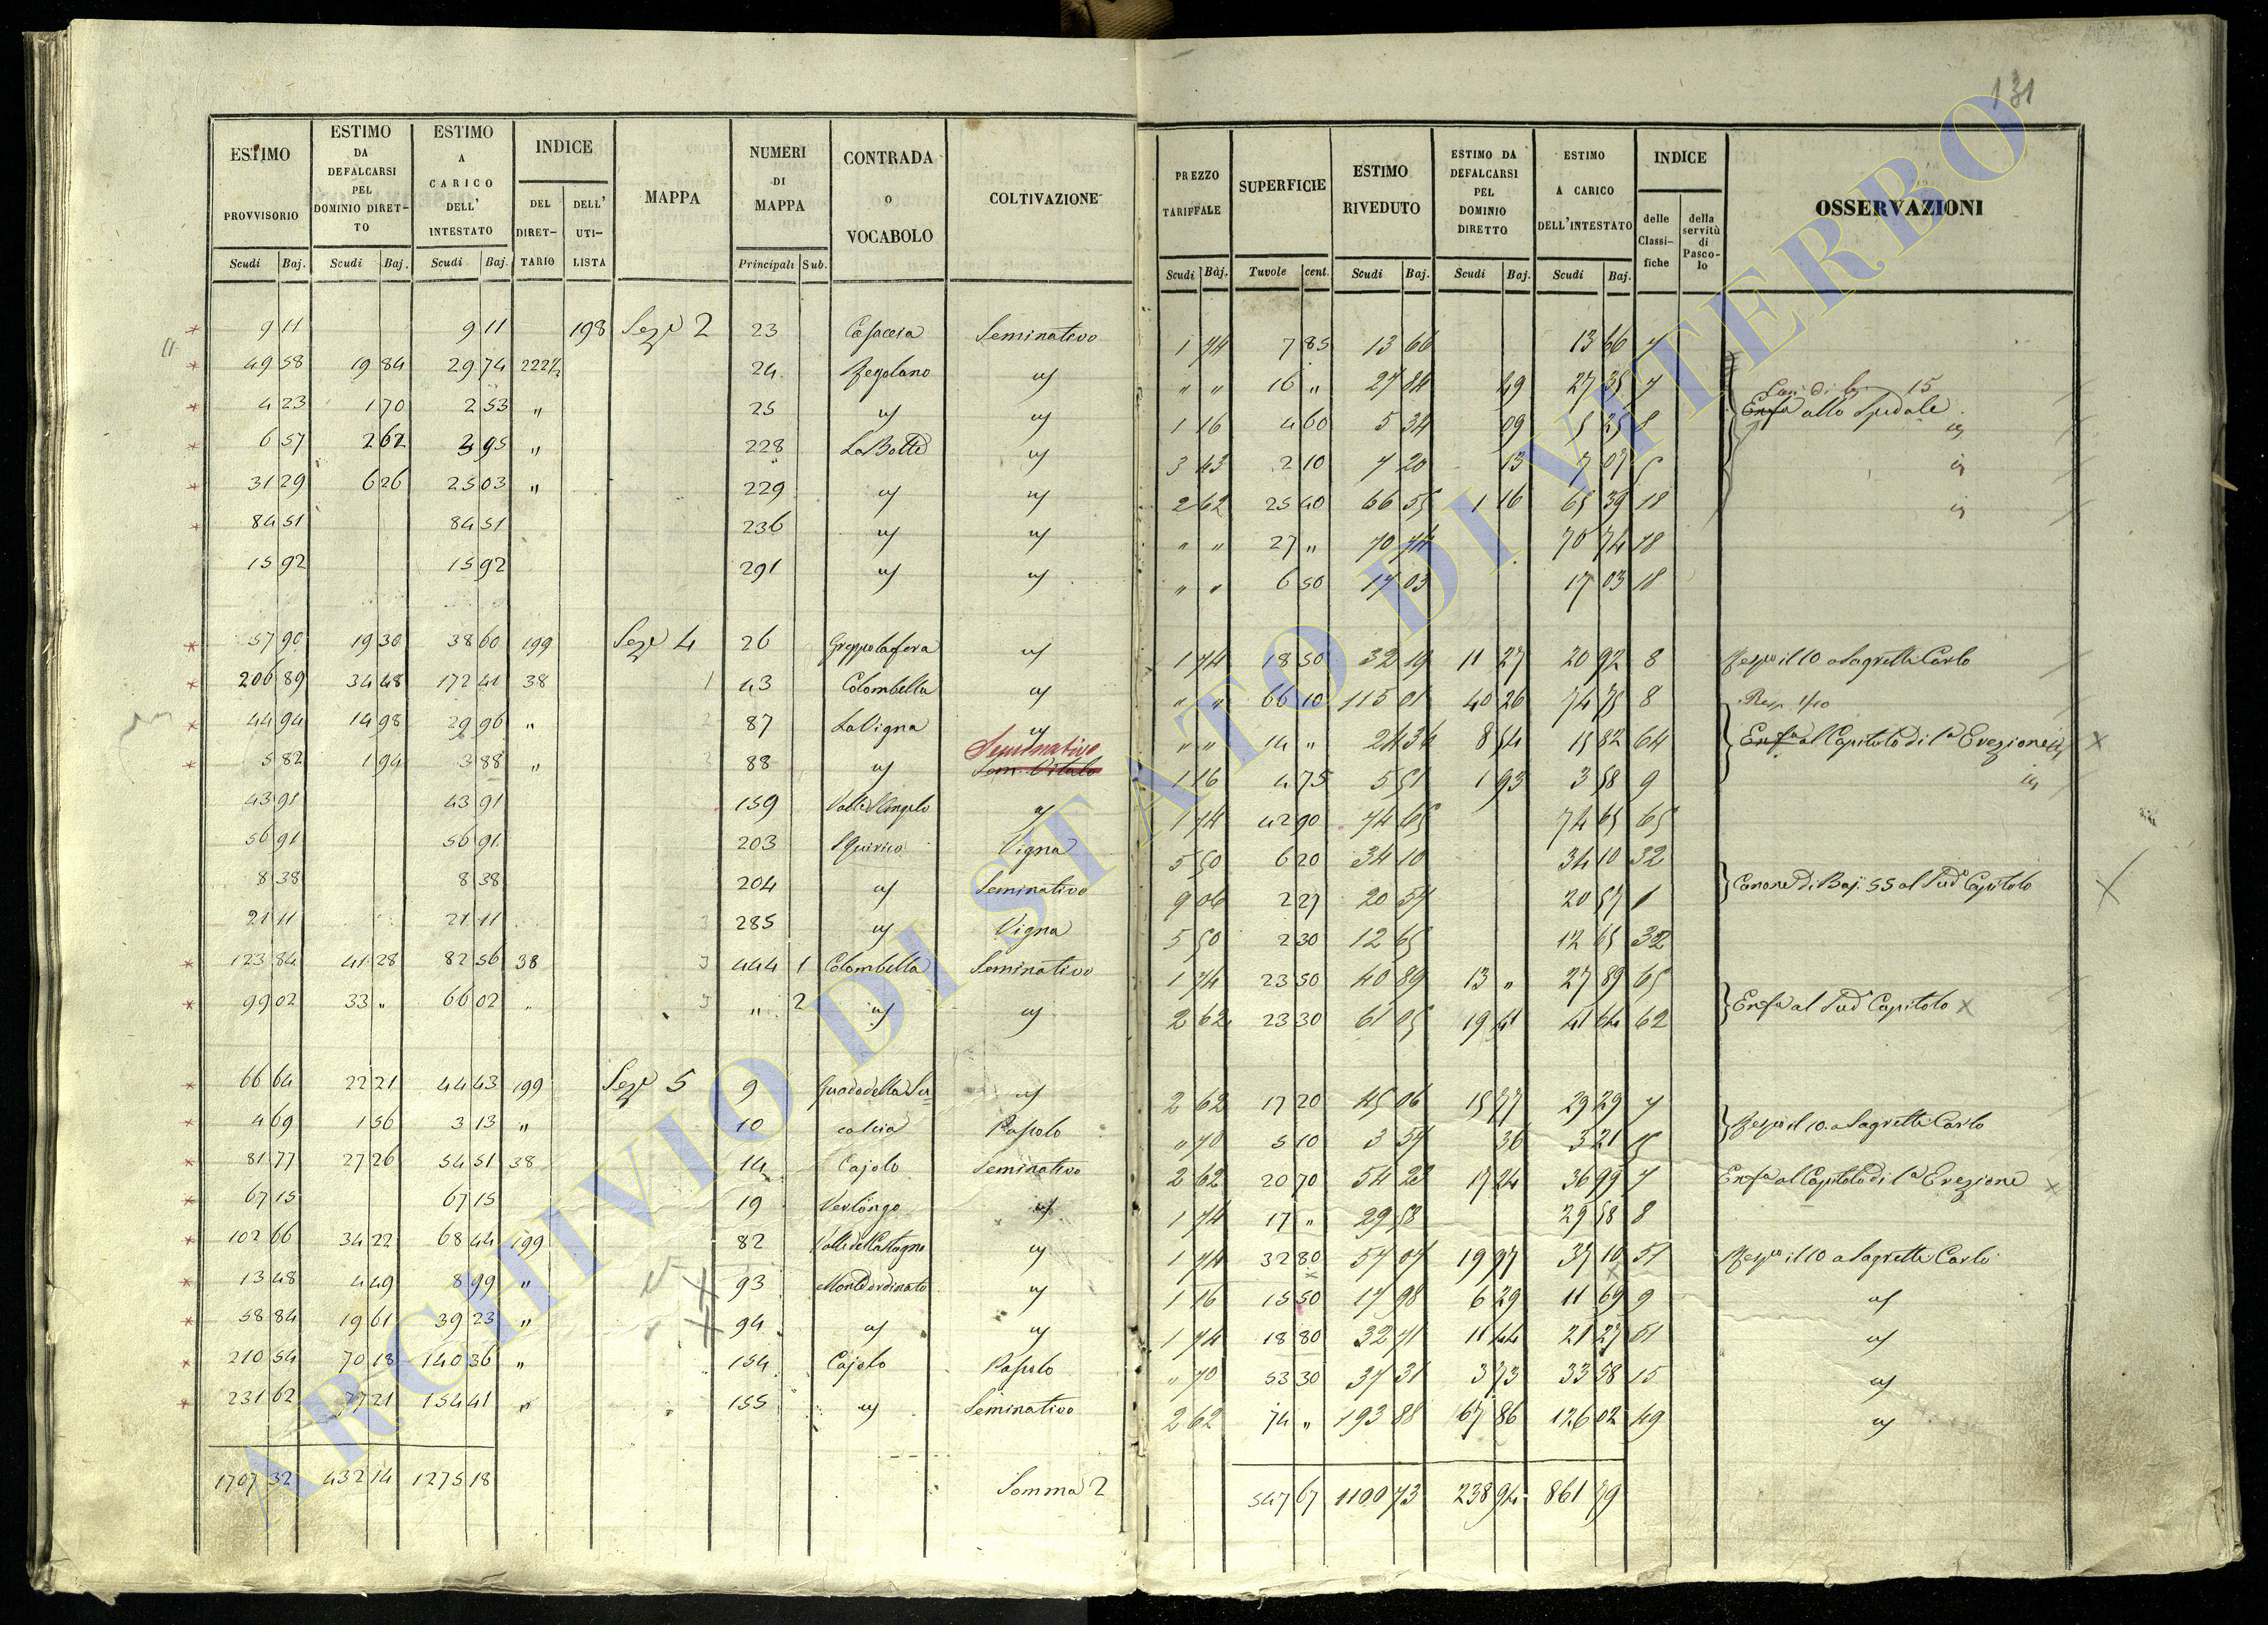 131
ESTIMO PROVVISORIO
ESTIMO DA DEFALCARSI PEL DOMINIO DIRET-TO
ESTIMO A CARICO DELL' INTESTATO
INDICE
DEL DIRET-TARIO
DELL' UTI-LISTA
MAPPA
NUMERI DI MAPPA
CONTRADA o VOCABOLO
COLTIVAZIONE
PREZZO TARIFFALE
SUPERFICIE
ESTIMO RIVEDUTO
ESTIMO DA DEFALCARSI PEL DOMINIO DIRETTO
ESTIMO A CARICO DELL'INTESTATO
INDICE
delle Classi-fiche
della servitù di Pasco-lo
OSSERVAZIONI
Scudi Baj. Scudi Baj. Scudi Baj. Principali Sub. Scudi Baj. Tavole cent. Scudi Baj. Scudi Baj. Scudi Baj.
9 11 9 11 198 Seze 2 23 Seminativo 1 74 7 85 13 66 13 66 7
49 58 19 84 29 74 222½ 24 Zegolano " " 16 " 27 84 49 27 35 7 15
4 23 1 70 2 53 " 25 1 16 4 60 5 34 09 5 25 8 Enfa allo Spedale
6 57 2 62 3 95 " 228 La Botte 3 43 2 10 7 20 13 7 07 5
31 29 6 26 25 03 " 229 2 62 25 40 66 55 1 16 65 39 18
84 51 84 51 236 " " 27 " 70 74 70 74 18
15 92 15 92 291 " " 6 50 17 03 17 03 18
57 90 19 30 38 60 199 Seze 4 26 Greppolafera 1 74 18 50 32 19 11 27 20 92 8 Respo il 10 a Sagretti Carlo
206 89 34 48 172 41 38 43 Colombella " " 66 10 115 01 40 26 74 75 8 Resp. 1/10
44 94 14 98 29 96 " 87 La Vigna " " 14 " 24 36 8 54 15 82 64 Enfa al Capitolo di 1a Erezione
5 82 1 94 3 88 " 88 Seminativo Sem. Vitato 1 16 4 75 5 51 1 93 3 58 9
43 91 43 91 159 Valle d'Angelo 1 74 42 90 74 65 74 65 65
56 91 56 91 203 S Quirico Vigna 5 50 6 20 34 10 34 10 32
8 38 8 38 204 Seminativo 9 06 2 27 20 57 20 57 1 Canone di Baj: 55 al Sudo Capitolo
21 11 21 11 285 Vigna 5 50 2 30 12 65 12 65 32
123 84 41 28 82 56 38 444 1 Colombella Seminativo 1 74 23 50 40 89 13 " 27 89 65
99 02 33 " 66 02 " " 2 2 62 23 30 61 05 19 41 41 64 62 Enfa al Sudo Capitolo
66 64 22 21 44 43 199 Seze 5 9 Guado della Sca= 2 62 17 20 45 06 15 77 29 29 7
4 69 1 56 3 13 " 10 calcia Pascolo " 70 5 10 3 57 36 3 21 15 Respo il 10 a Sagretti Carlo
81 77 27 26 54 51 38 14 Cajolo Seminativo 2 62 20 70 54 23 17 24 36 99 7 Enfa al Capitolo di 1a Erezione
67 15 67 15 19 Verlongo 1 74 17 " 29 58 29 58 8
102 66 34 22 68 44 199 82 Valle dell'Astagno 1 74 32 80 57 07 19 97 37 10 51 Respo il 10 a Sagretti Carlo
13 48 4 49 8 99 " 93 Monte ordinato 1 16 15 50 17 98 6 29 11 69 9
58 84 19 61 39 23 " 94 1 74 18 80 32 71 11 44 21 27 51
210 54 70 18 140 36 " 154 Cajolo Pascolo " 70 53 30 37 31 3 73 33 58 15
231 62 77 21 154 41 " 155 Seminativo 2 62 74 " 193 88 67 86 126 02 49
1707 32 432 14 1275 18 Somma 2 547 67 1100 73 238 94 861 79
ARCHIVIO DI STATO DI VITERBO